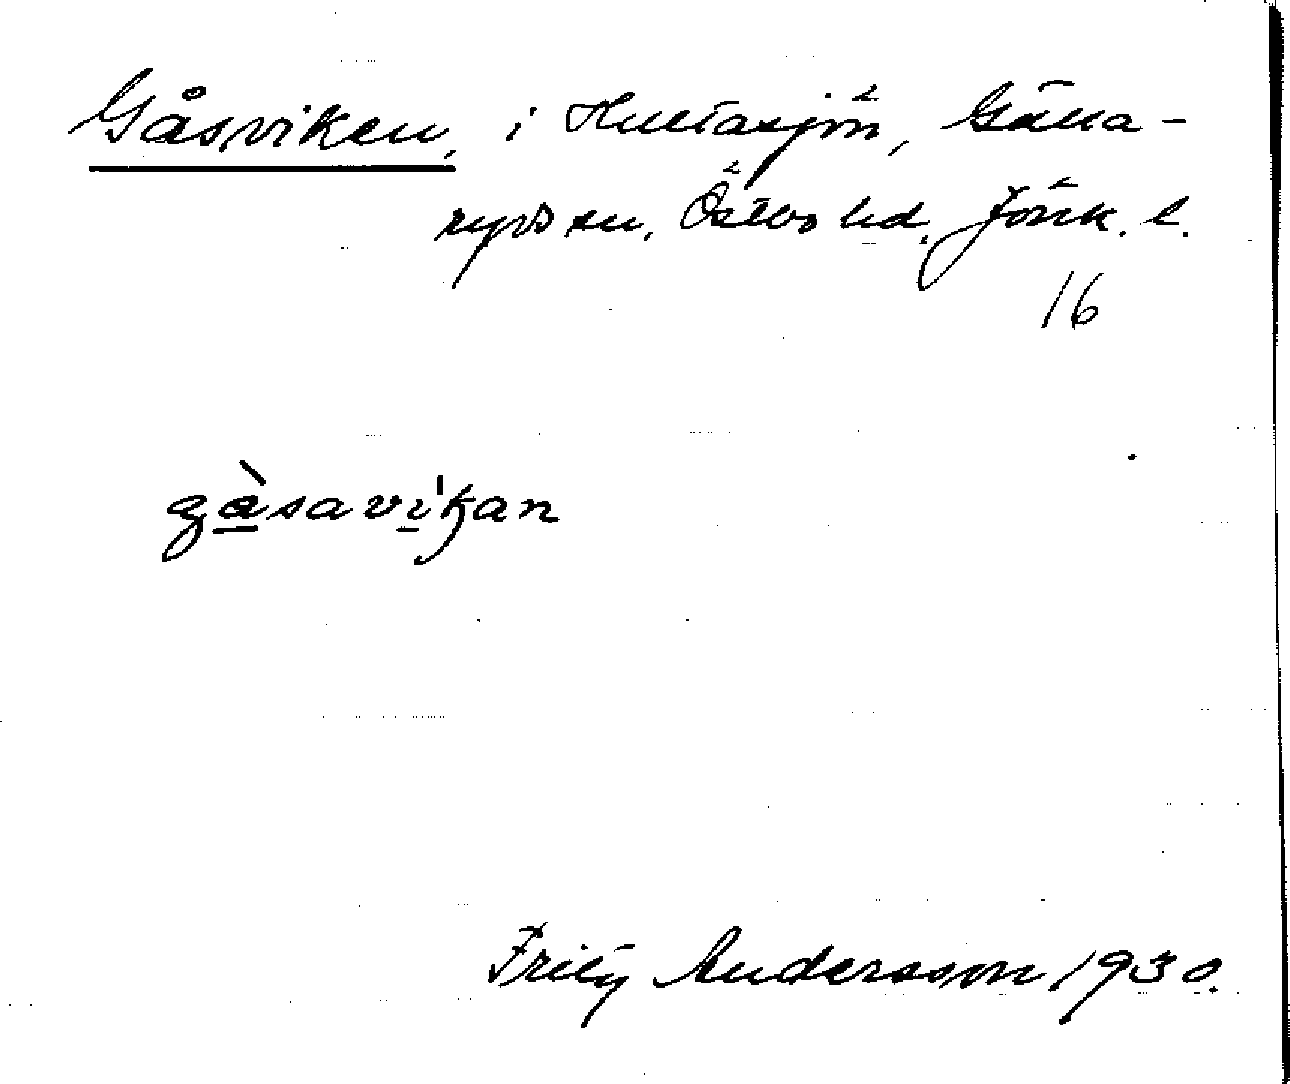 Gåsviken, i Hultasjön, Gälla-
ryds sn. Östbo hd. Jönk. l.
16
gàsavikan
Fritz Andersson 1930.